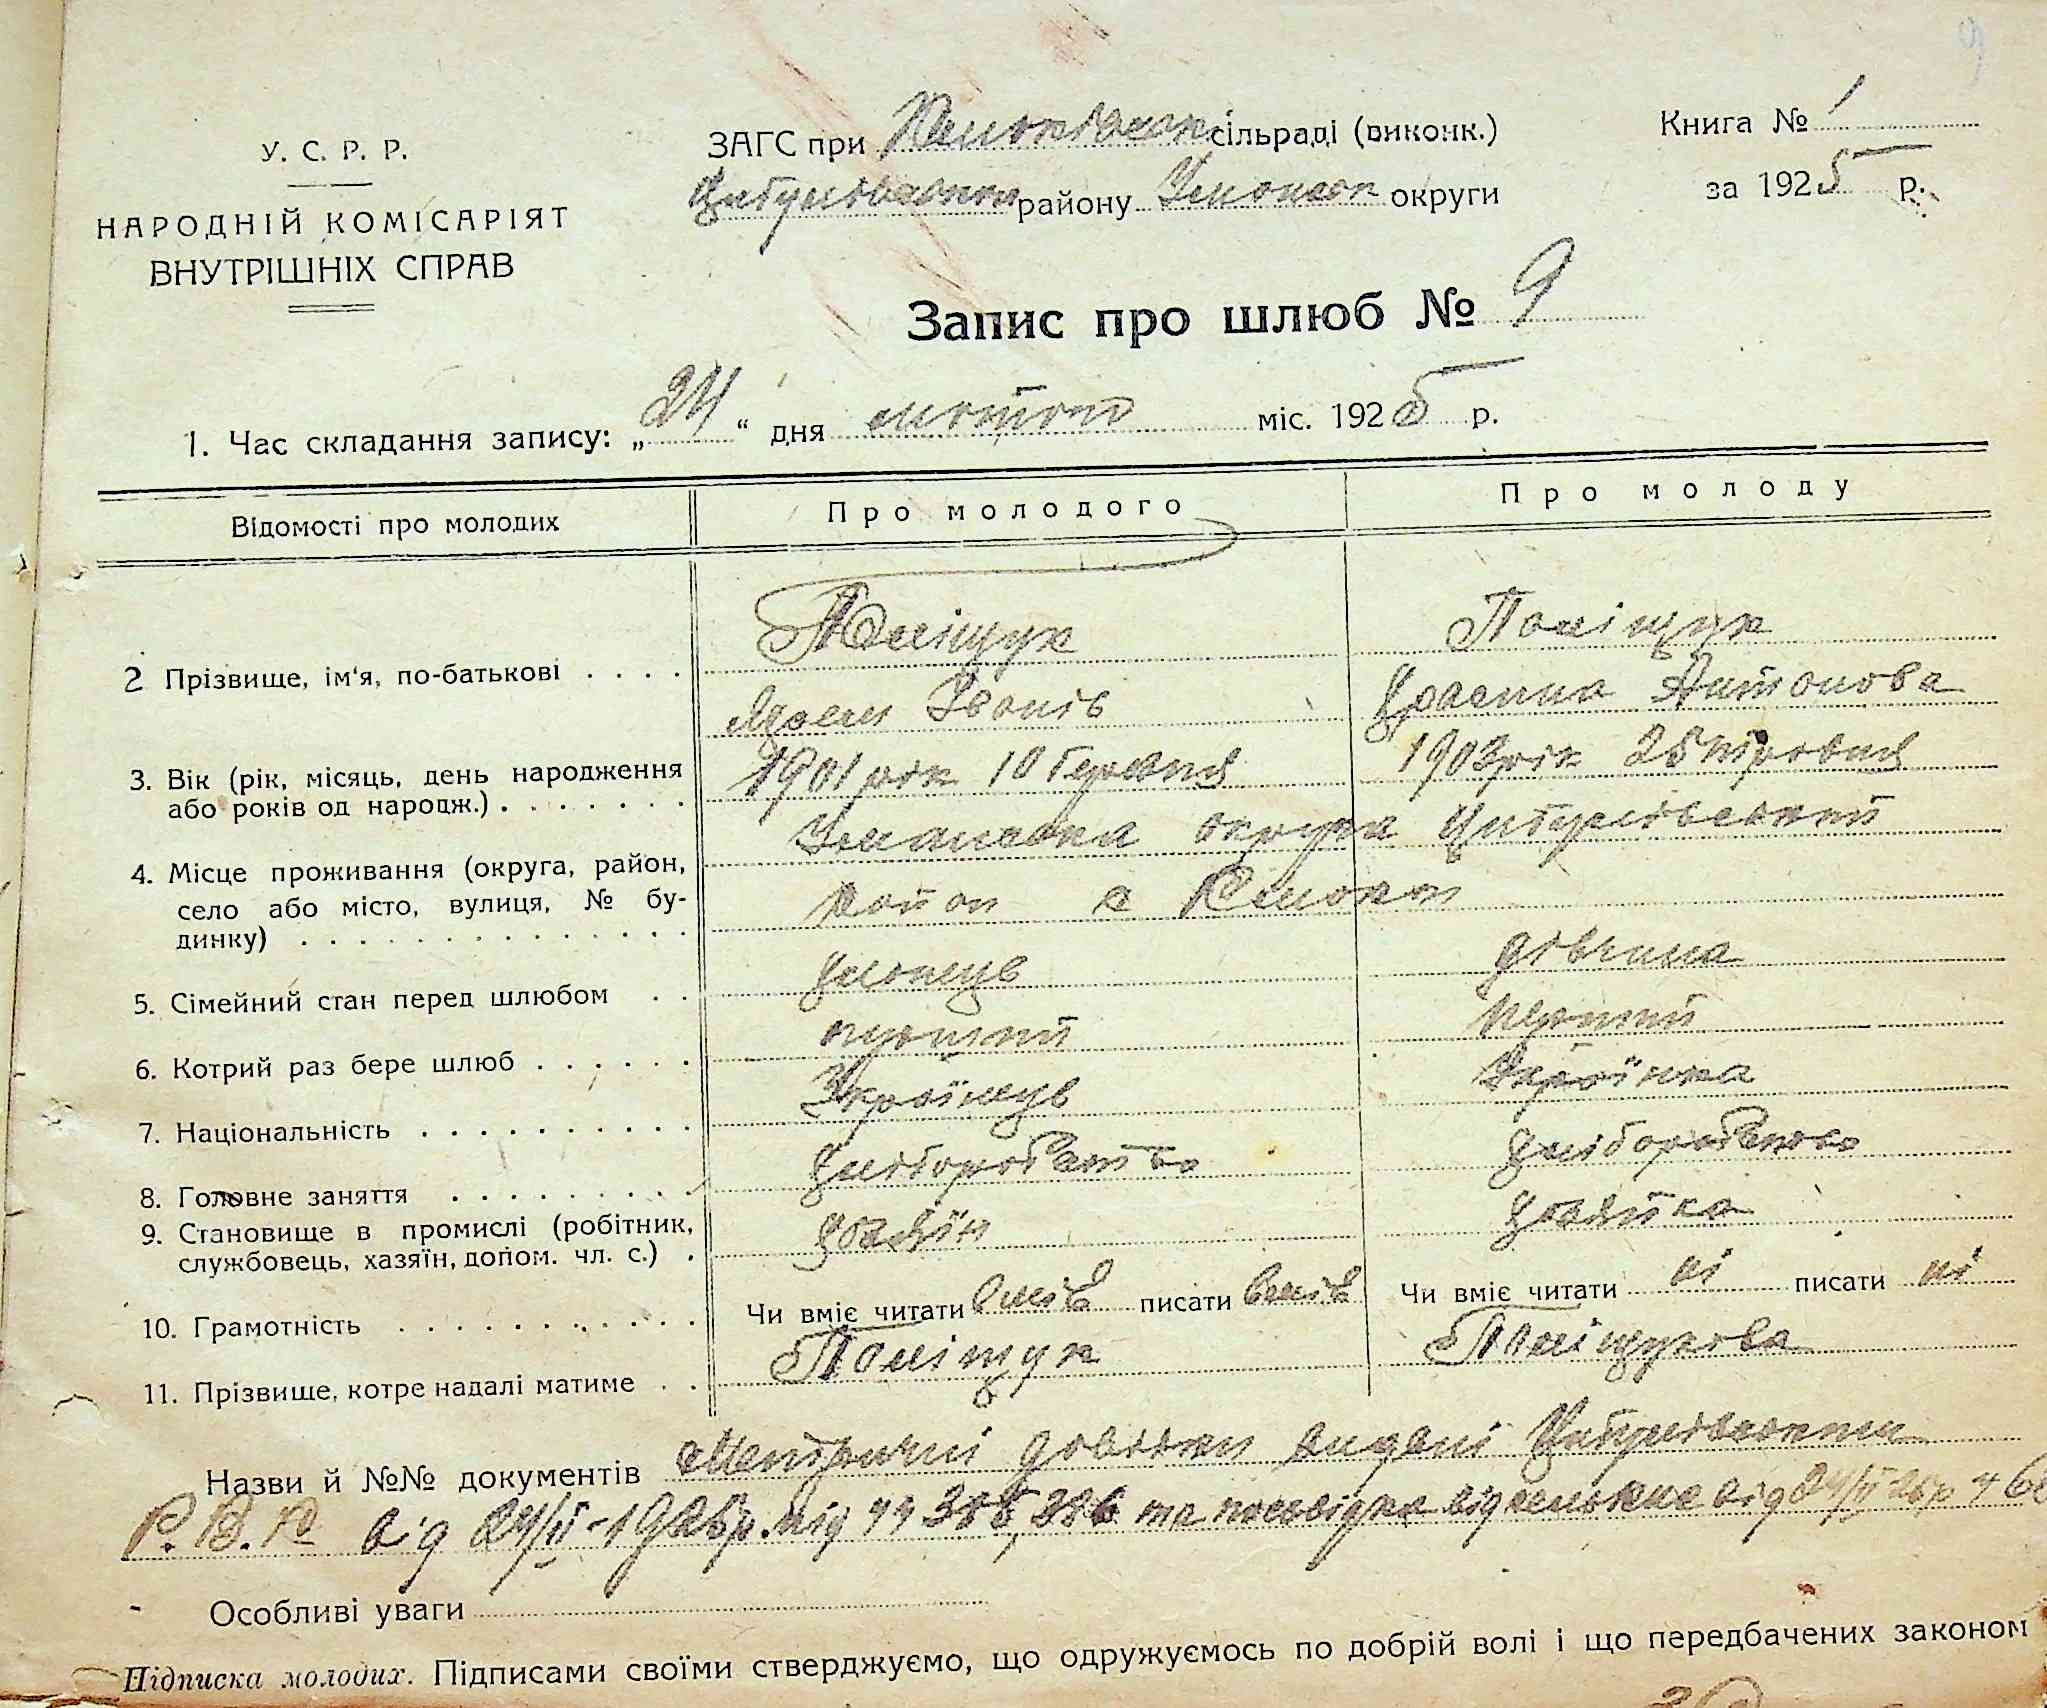 У. С. Р. Р.
НАРОДНІЙ КОМІСАРІЯТ
ВНУТРІШНІХ СПРАВ
ЗАГС при сільраді (виконк.)
району Уманськ округи
Книга № 1
за 1925 р.
Запис про шлюб № 9
1. Час складання запису: „24“ дня лютого міс. 1925 р.
Відомості про молодих Про молодого Про молоду
2 Прізвище, ім'я, по-батькові . . . . Поліщук Поліщук
Іванів Антонова
3. Вік (рік, місяць, день народження 1901 рік 10 1903 рік 25
або років од народж.) . . . . . . .
Уманська округа Цибулівський
4. Місце проживання (округа, район,
село або місто, вулиця, № бу- район с
динку) . . . . . . . . . . . . . . .
5. Сімейний стан перед шлюбом . . хлопець дівчина
6. Котрий раз бере шлюб . . . . . . перший перший
7. Національність . . . . . . . . . . Українець Українка
8. Головне заняття . . . . . . . . . хліборобство хліборобство
9. Становище в промислі (робітник,
службовець, хазяїн, допом. чл. с.) . хозяїн хозяйка
10. Грамотність . . . . . . . . . . . Чи вміє читати вмів писати вмів Чи вміє читати ні писати ні
11. Прізвище, котре надалі матиме . . Поліщук Поліщукова
Назви й №№ документів Метричні довідки видані Цибулівським
Р.В.К від 24/II-1925р. під 385, 386 та посвідка від від 24/II 25р
Особливі уваги
Підписка молодих. Підписами своїми стверджуємо, що одружуємось по добрій волі і що передбачених законом